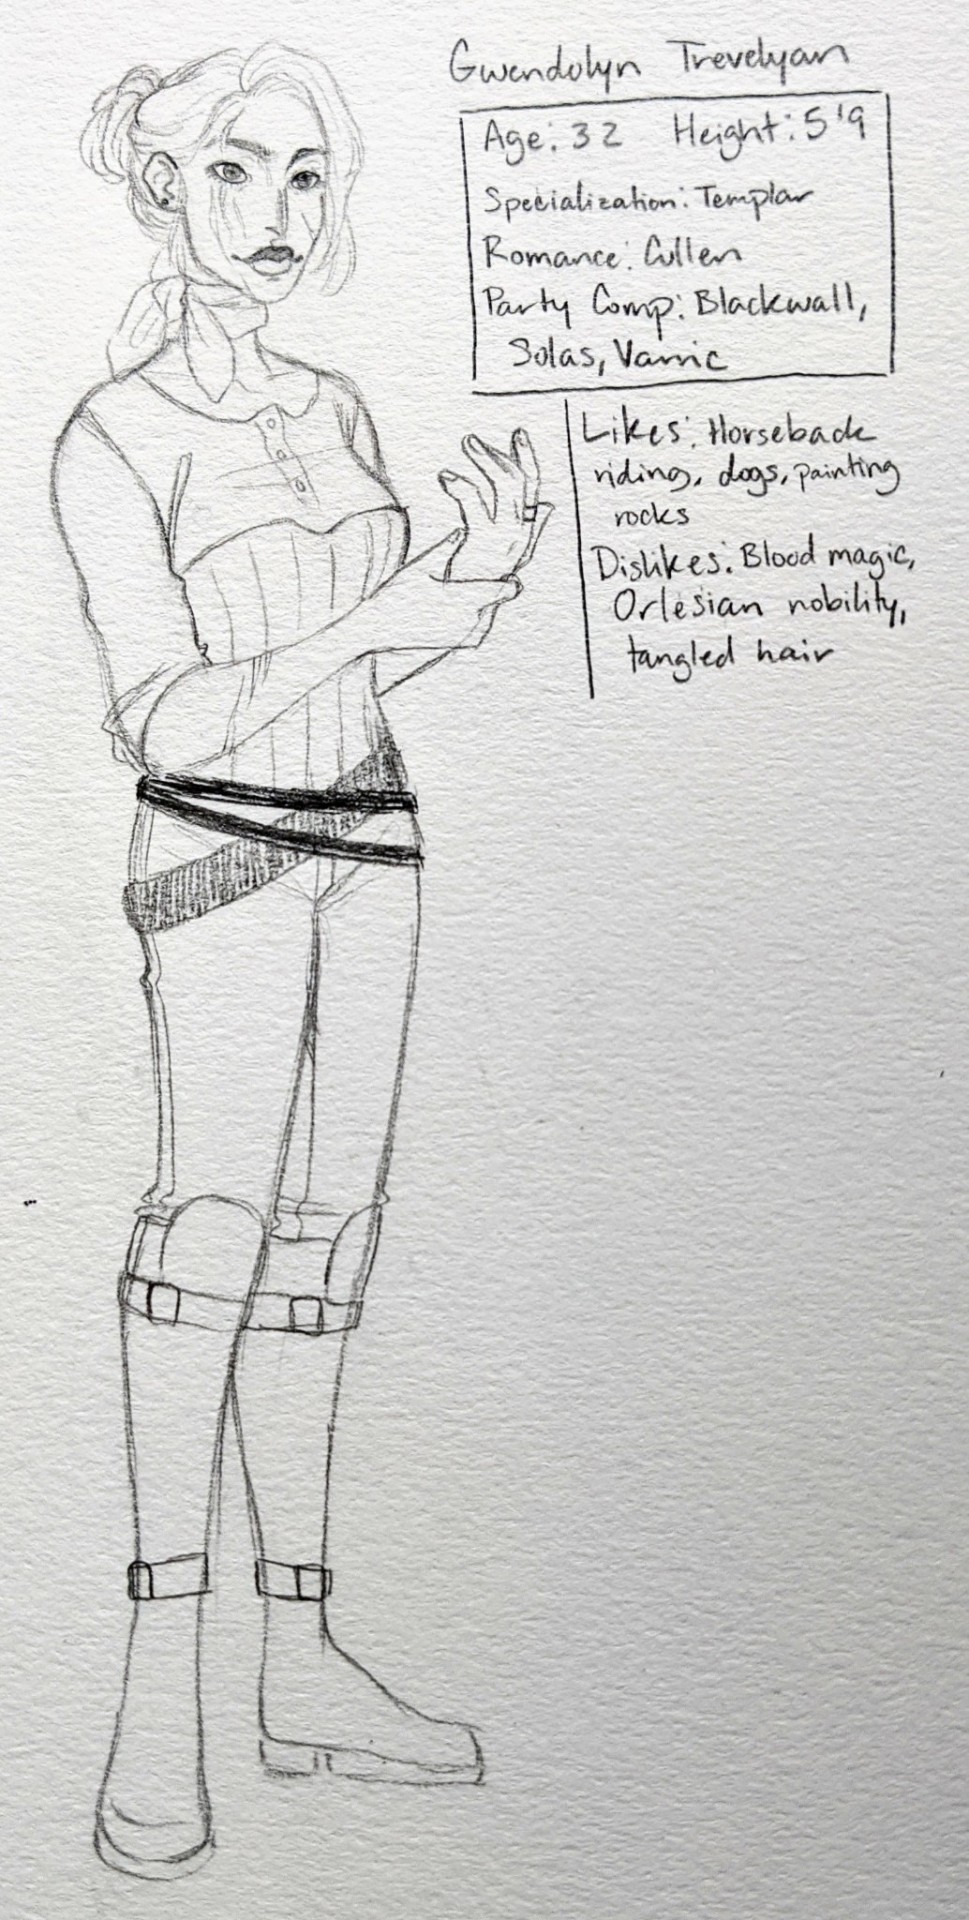 Gwendolyn Trevelyan
Age: 32 Height: 5'9
Specialization: Templar
Romance: Cullen
Party Comp: Blackwall,
Solas, Varric
Likes: Horseback
riding, dogs, painting
rocks
Dislikes: Blood magic,
Orlesian nobility,
tangled hair